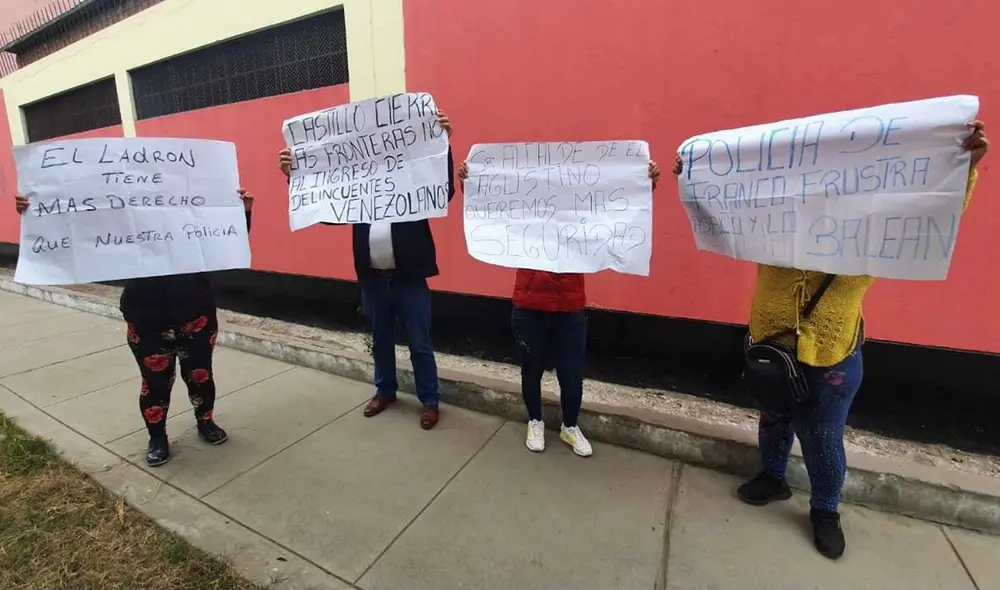 EL LADRON
TIENE
MAS DERECHO
QUE NUESTRA POLICIA
CASTILLO CIERRE
LAS FRONTERAS
AL INGRESO DE
DELINCUENTES
VENEZOLANOS
ALCALDE DE EL
AGUSTINO
QUEREMOS MAS
SEGURIDAD
POLICIA DE
FRANCO FRUSTRA
ROBO Y LO
BALEAN